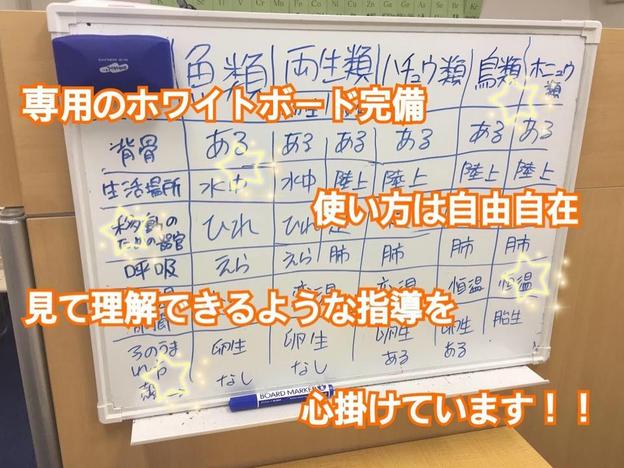 魚類 両生類 ハチュウ類 鳥類 ホニュウ類
専用のホワイトボード完備
背骨 ある ある ある ある ある ある
生活場所 水中 水中 陸上 陸上 陸上 陸上
使い方は自由自在
移動のための器官 ひれ ひれ
呼吸 えら えら 肺 肺 肺 肺
変温 変温 恒温 恒温
見て理解できるような指導を
子のうまれ方 卵生 卵生 卵生 卵生 胎生
なし なし ある ある
BOARD MARKER
心掛けています！！